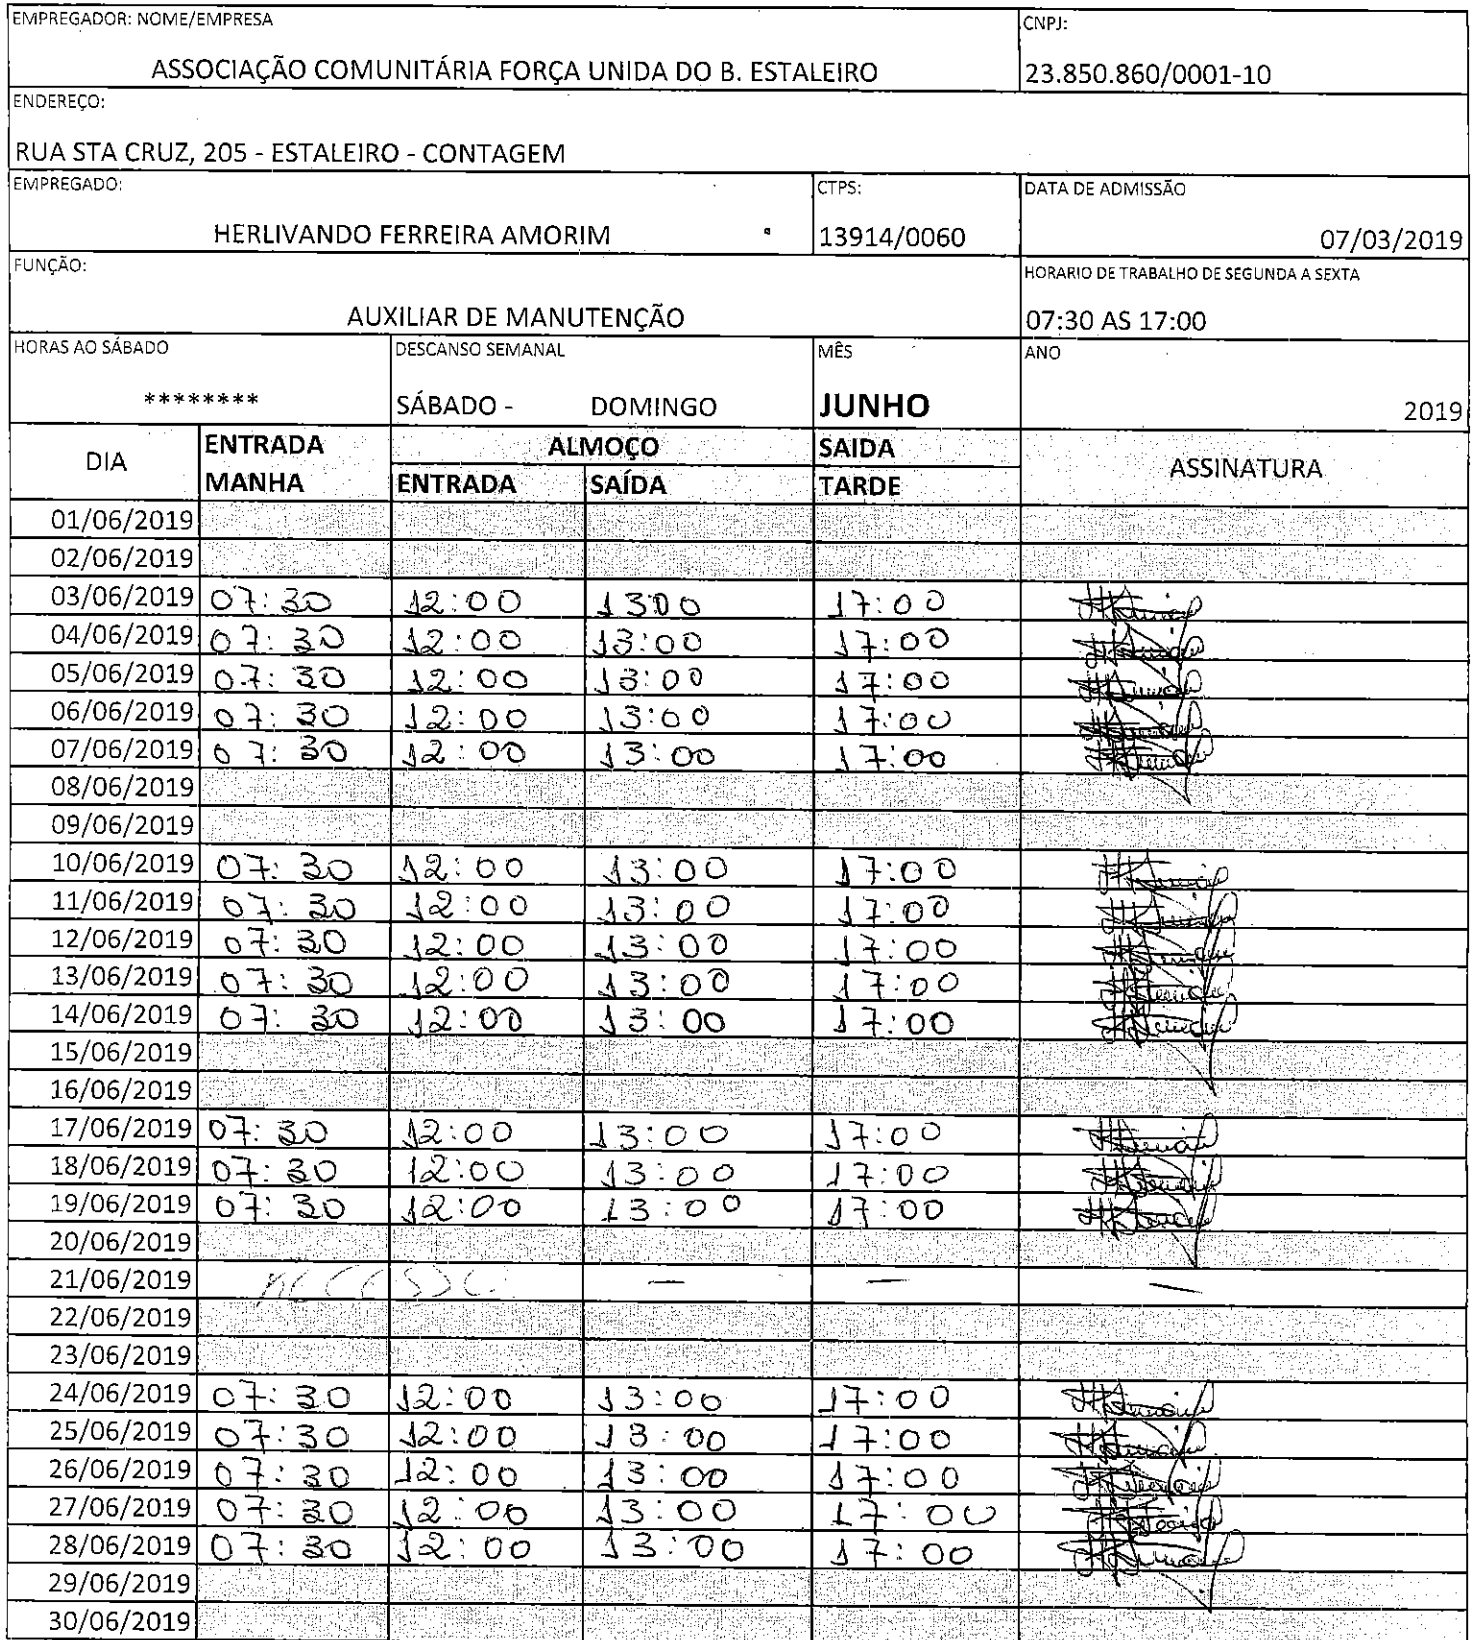 EMPREGADOR: NOME/EMPRESA CNPJ:
ASSOCIAÇÃO COMUNITÁRIA FORÇA UNIDA DO B. ESTALEIRO 23.850.860/0001-10
ENDEREÇO:
RUA STA CRUZ, 205 - ESTALEIRO - CONTAGEM
EMPREGADO: CTPS: DATA DE ADMISSÃO
HERLIVANDO FERREIRA AMORIM 13914/0060 07/03/2019
FUNÇÃO: HORARIO DE TRABALHO DE SEGUNDA A SEXTA
AUXILIAR DE MANUTENÇÃO 07:30 AS 17:00
HORAS AO SÁBADO DESCANSO SEMANAL MÊS ANO
******** SÁBADO - DOMINGO JUNHO 2019
DIA ENTRADA MANHA ALMOÇO SAIDA TARDE ASSINATURA
ENTRADA SAÍDA
01/06/2019
02/06/2019
03/06/2019 07:30 12:00 1300 17:00
04/06/2019 07:30 12:00 13:00 17:00
05/06/2019 07:30 12:00 13:00 17:00
06/06/2019 07:30 12:00 13:00 17:00
07/06/2019 07:30 12:00 13:00 17:00
08/06/2019
09/06/2019
10/06/2019 07:30 12:00 13:00 17:00
11/06/2019 07:30 12:00 13:00 17:00
12/06/2019 07:30 12:00 13:00 17:00
13/06/2019 07:30 12:00 13:00 17:00
14/06/2019 07:30 12:00 13:00 17:00
15/06/2019
16/06/2019
17/06/2019 07:30 12:00 13:00 17:00
18/06/2019 07:30 12:00 13:00 17:00
19/06/2019 07:30 12:00 13:00 17:00
20/06/2019
21/06/2019 — — —
22/06/2019
23/06/2019
24/06/2019 07:30 12:00 13:00 17:00
25/06/2019 07:30 12:00 13:00 17:00
26/06/2019 07:30 12:00 13:00 17:00
27/06/2019 07:30 12:00 13:00 17:00
28/06/2019 07:30 12:00 13:00 17:00
29/06/2019
30/06/2019